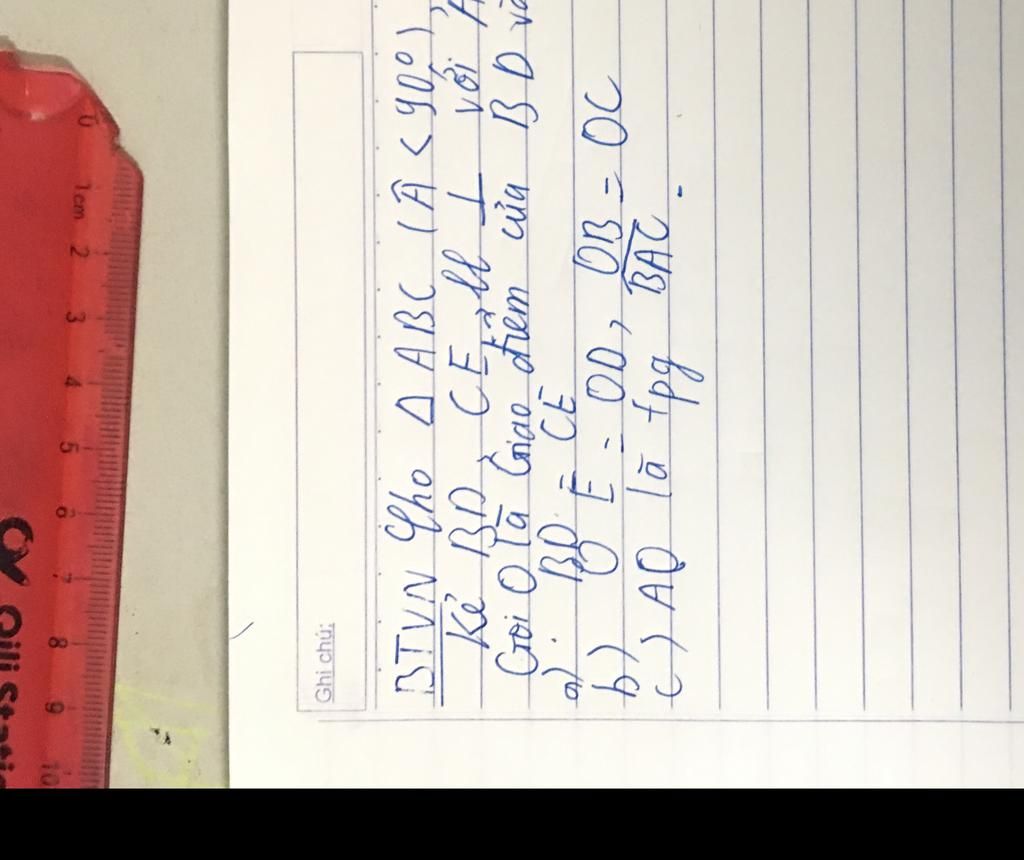 Ghi chú:
BTVN Cho Δ ABC (Â < 90°),
Kẻ BD, CE lll ⊥ với A
Gọi O là Giao điểm của BD và
a) BD = CE
b) OE = OD, OB = OC
c) AO là tpg BAC.
0 1cm 2 3 4 5 6 7 8 9 10